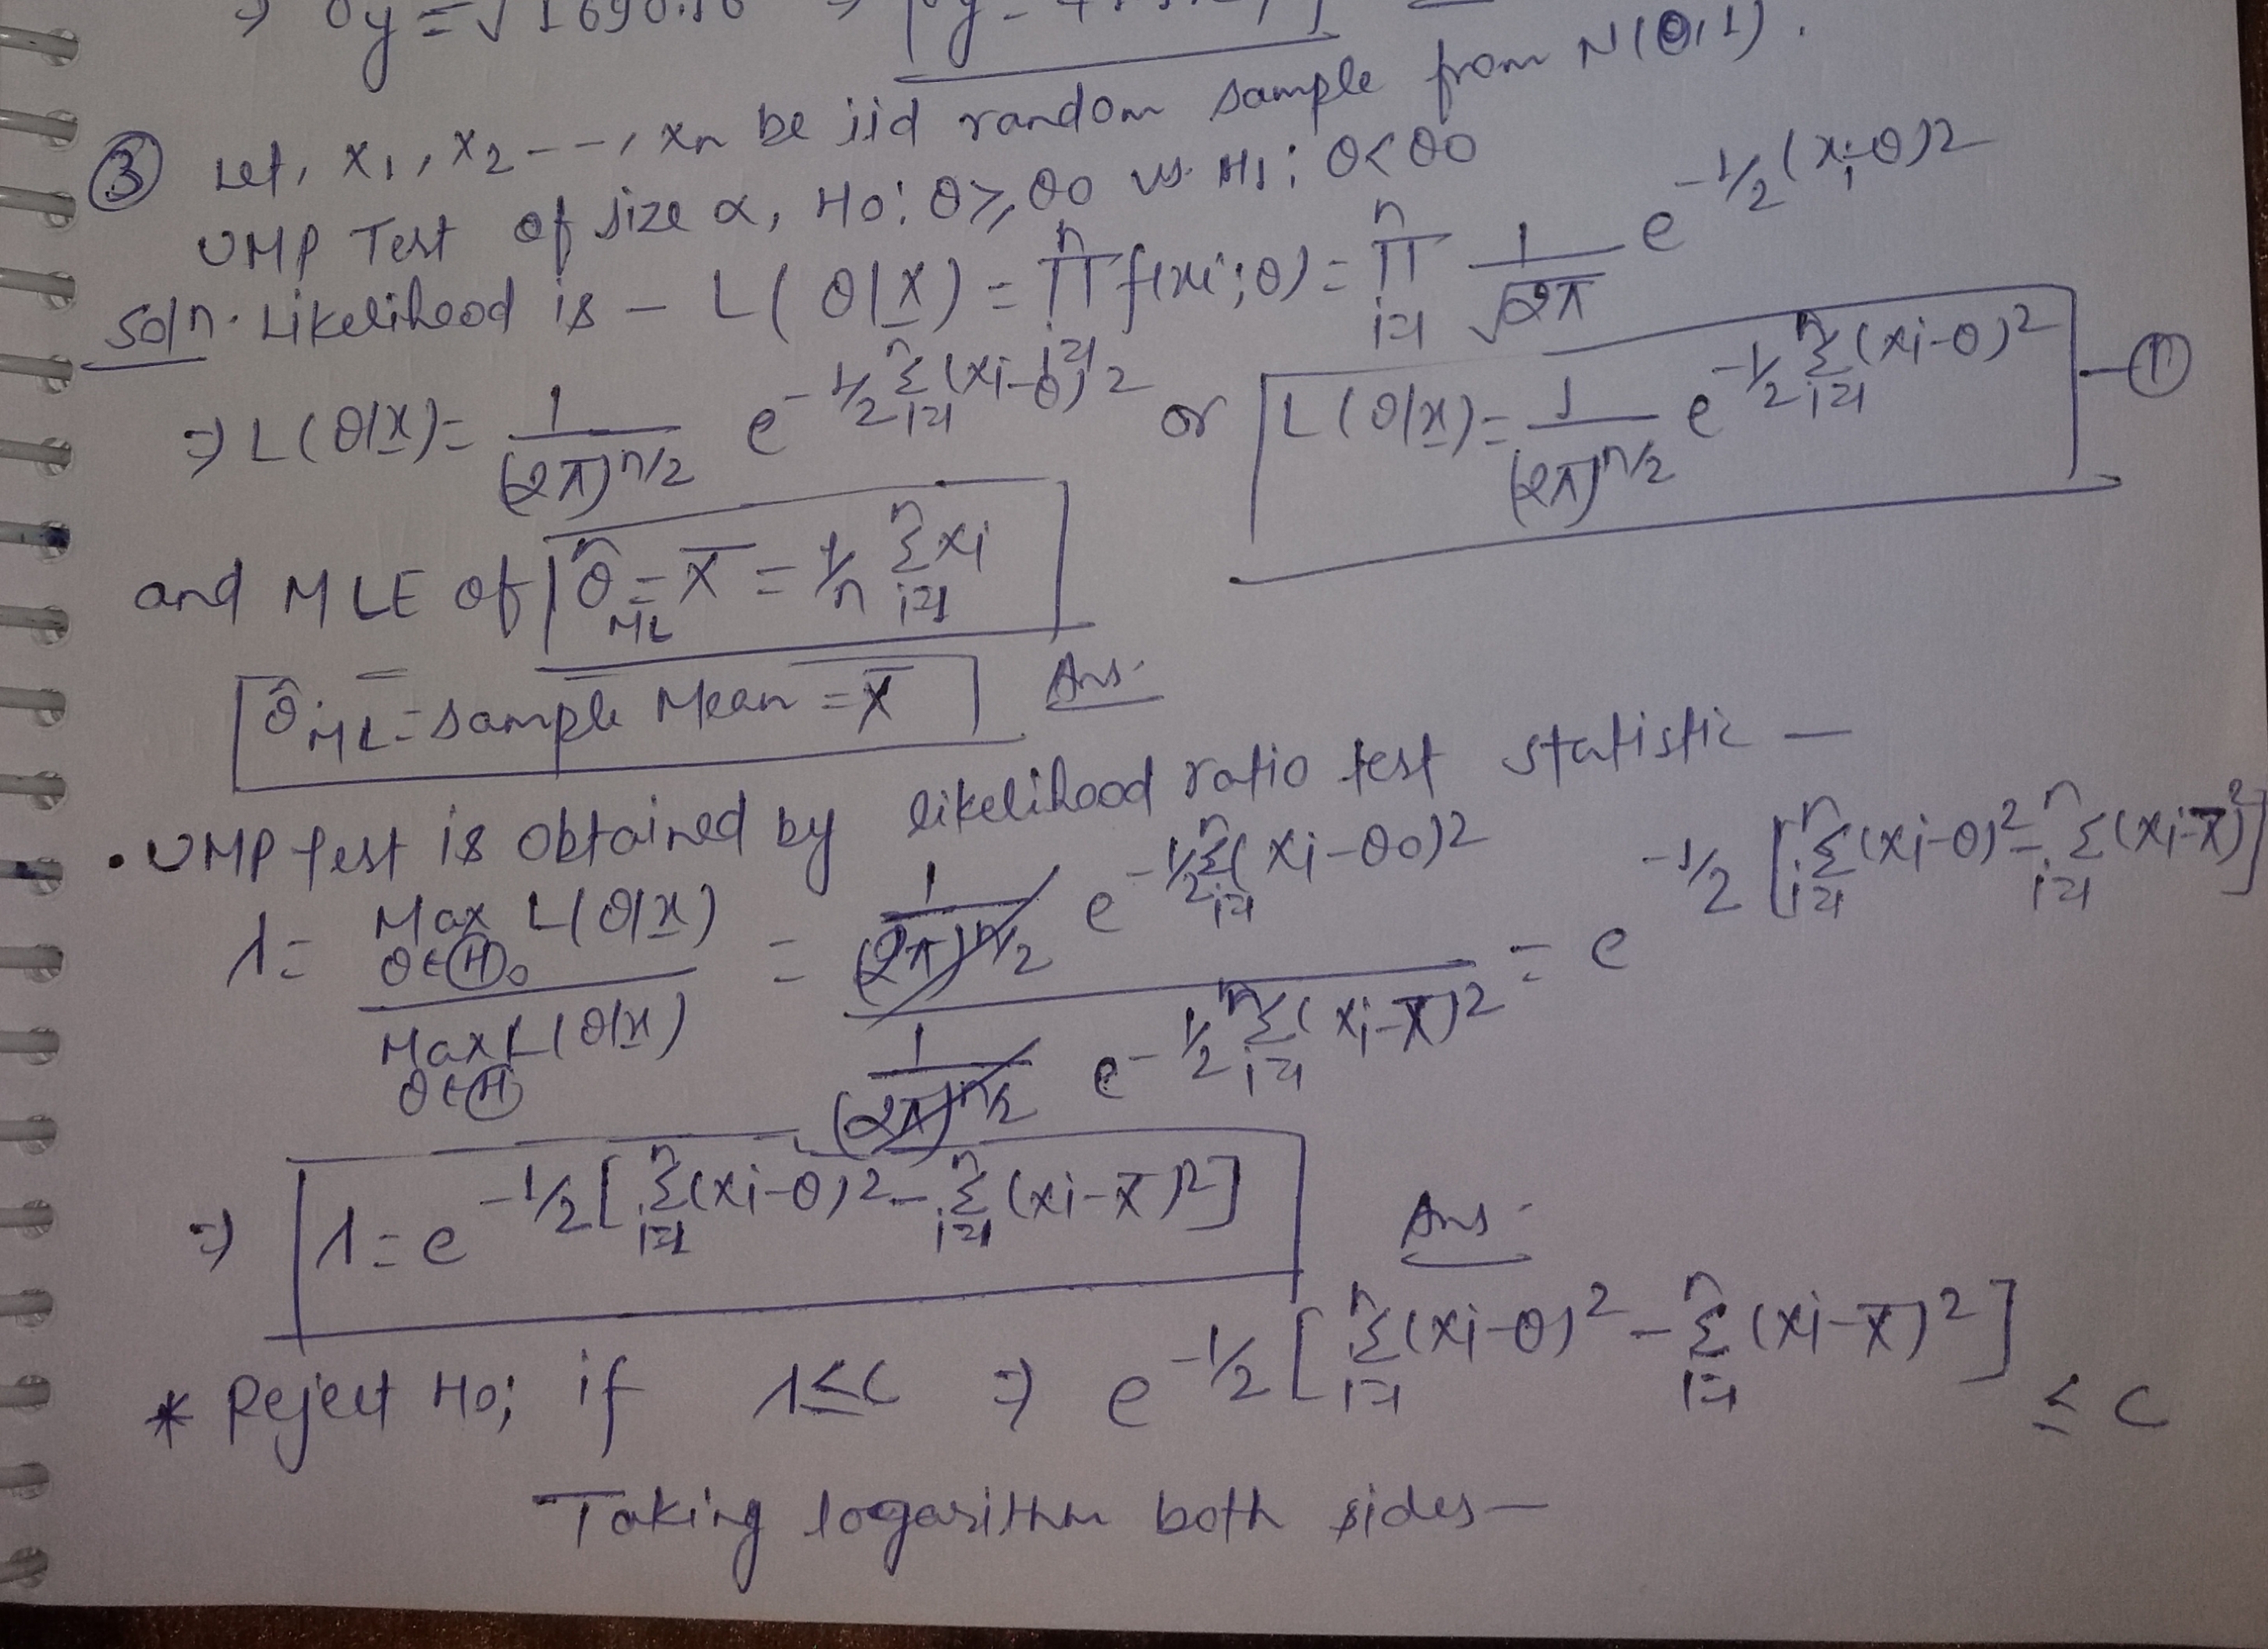 ⇒ σy = √1690.
③ Let, x₁, x₂ ---, xₙ be iid random sample from N(θ,1).
UMP Test of size α, H₀: θ ≥ θ₀ vs. H₁: θ < θ₀
Soln. Likelihood is – L(θ|x̲) = ∏ⁿᵢ₌₁ f(xᵢ;θ) = ∏ⁿᵢ₌₁ 1/√2π e^{-1/2 (xᵢ-θ)²}
⇒ L(θ|x̲) = 1/(2π)^{n/2} e^{-1/2 Σⁿᵢ₌₁ (xᵢ-θ)²} or L(θ|x̲) = 1/(2π)^{n/2} e^{-1/2 Σⁿᵢ₌₁ (xᵢ-θ)²} –①
and MLE of θ̂_ML = x̄ = 1/n Σⁿᵢ₌₁ xᵢ
θ̂_ML = sample Mean = x̄ Ans.
• UMP test is obtained by likelihood ratio test statistic –
λ = Max_{θ∈Ⓗ₀} L(θ|x̲) / Max_{θ∈Ⓗ} L(θ|x̲) = 1/(2π)^{n/2} e^{-1/2 Σⁿᵢ₌₁ (xᵢ-θ₀)²} / 1/(2π)^{n/2} e^{-1/2 Σⁿᵢ₌₁ (xᵢ-x̄)²} = e^{-1/2 [Σⁿᵢ₌₁ (xᵢ-θ)² - Σⁿᵢ₌₁ (xᵢ-x̄)²]}
⇒ λ = e^{-1/2 [Σⁿᵢ₌₁ (xᵢ-θ)² - Σⁿᵢ₌₁ (xᵢ-x̄)²]} Ans.
* Reject H₀; if λ ≤ C ⇒ e^{-1/2 [Σⁿᵢ₌₁ (xᵢ-θ)² - Σⁿᵢ₌₁ (xᵢ-x̄)²]} ≤ C
Taking logarithm both sides –